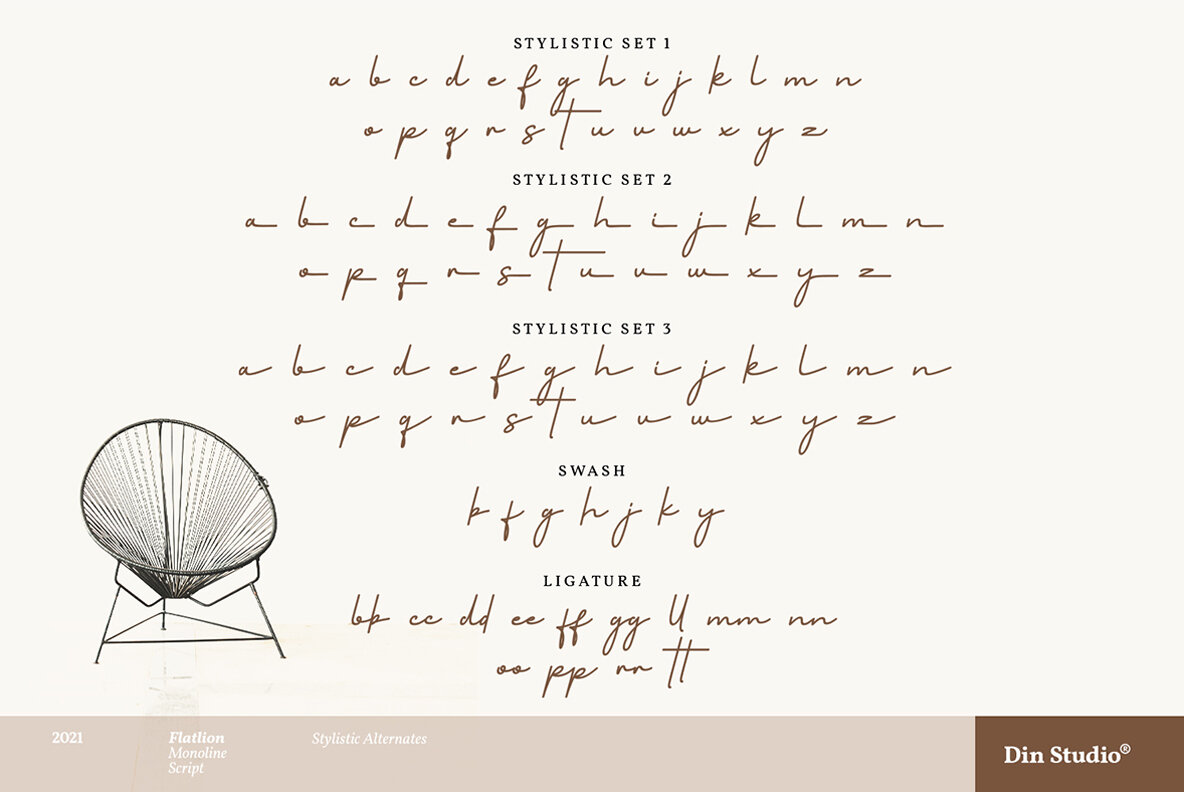 STYLISTIC SET 1
a b c d e f g h i j k l m n
o p q r s t u v w x y z
STYLISTIC SET 2
a b c d e f g h i j k l m n
o p q r s t u v w x y z
STYLISTIC SET 3
a b c d e f g h i j k l m n
o p q r s t u v w x y z
SWASH
b f g h j k y
LIGATURE
bb cc dd ee ff gg ll mm nn
oo pp rr tt
2021
Flatlion
Monoline
Script
Stylistic Alternates
Din Studio®